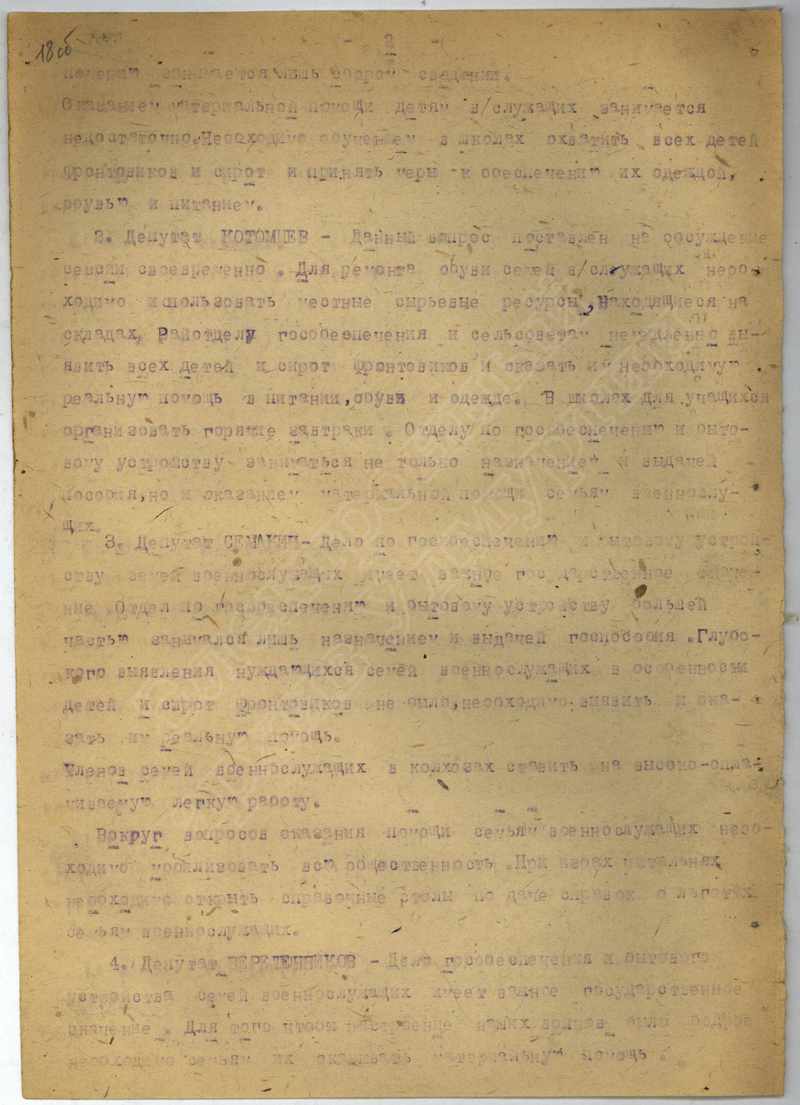 18об
- 2 -
занимается лишь сведений.
Оказанием материальной помощи детям в/служащих занимается
недостаточно.Необходимо обучением в школах охватить всех детей
фронтовиков и сирот и принять меры к обеспечению их одеждой,
обувью и питанием.
2. Депутат КОТОМЦЕВ - Данный вопрос поставлен на обсуждение
сессии своевременно . Для ремонта обуви семей в/служащих необ-
ходимо использовать местные сырьевые ресурсы ,находящиеся на
складах. Райотделу гособеспечения и сельсоветам немедленно вы-
явить всех детей и сирот фронтовиков и оказать им необходимую
реальную помощь в питании,обуви и одежде. В школах для учащихся
организовать горячие завтраки . Отделу по гособеспечению и быто-
вому устройству заниматься не только назначением и выдачей
пособия,но и оказанием материальной помощи семьям военнослу-
щих.
3. Депутат СЕМАКИН- Дело по гособеспечению и бытовому устрой-
ству семей военнослужащих имеет важное государственное значе-
ние .Отдел по гособеспечению и бытовому устройству большей
частью занимался лишь назначением и выдачей госпособия .Глубо-
кого выявления нуждающихся семей военнослужащих в особенности
детей и сирот фронтовиков не было,необходимо выявить и ока-
зать им реальную помощь.
Членов семей военнослужащих в колхозах ставить на высоко-опла-
чиваемую легкую работу.
Вокруг вопросов оказания помощи семьям военнослужащих необ-
ходимо мобилизовать всю общественность .При избах читальнях
необходимо открыть справочные столы по даче справок о льготах
семьям военнослужащих.
4. Депутат - Дело гособеспечения и бытового
устройства семей военнослужащих имеет важное государственное
значение . Для того чтобы настроение наших воинов было бодрое
необходимо семьям их оказывать материальную помощь .